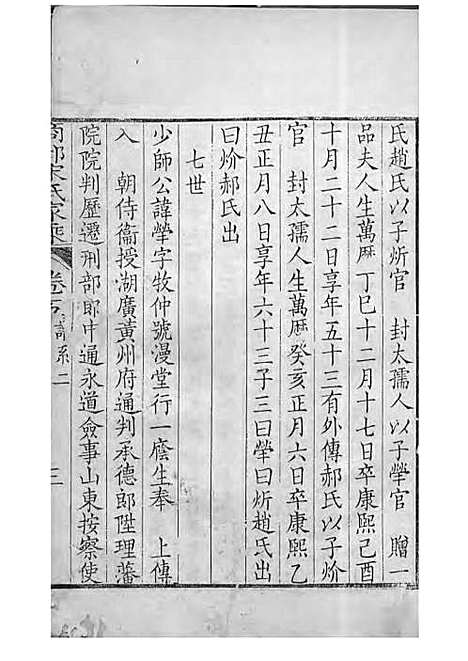 氏趙氏以子炘官　封太孺人以子犖官　贈一
品夫人生萬曆丁巳十二月十七日卒康熙己酉
十月二十二日享年五十三有外傳郝氏以子炌
官　封太孺人生萬曆癸亥正月六日卒康熙乙
丑正月八日享年六十三子三曰犖曰炘趙氏出
曰炌郝氏出
七世
少師公諱犖字牧仲號漫堂行一廕生奉　上傳
入　朝侍衞授湖廣黃州府通判承德郎陞理藩
院院判歷遷刑部郎中通永道僉事山東按察使
商邱宋氏家乘　卷 系二　三